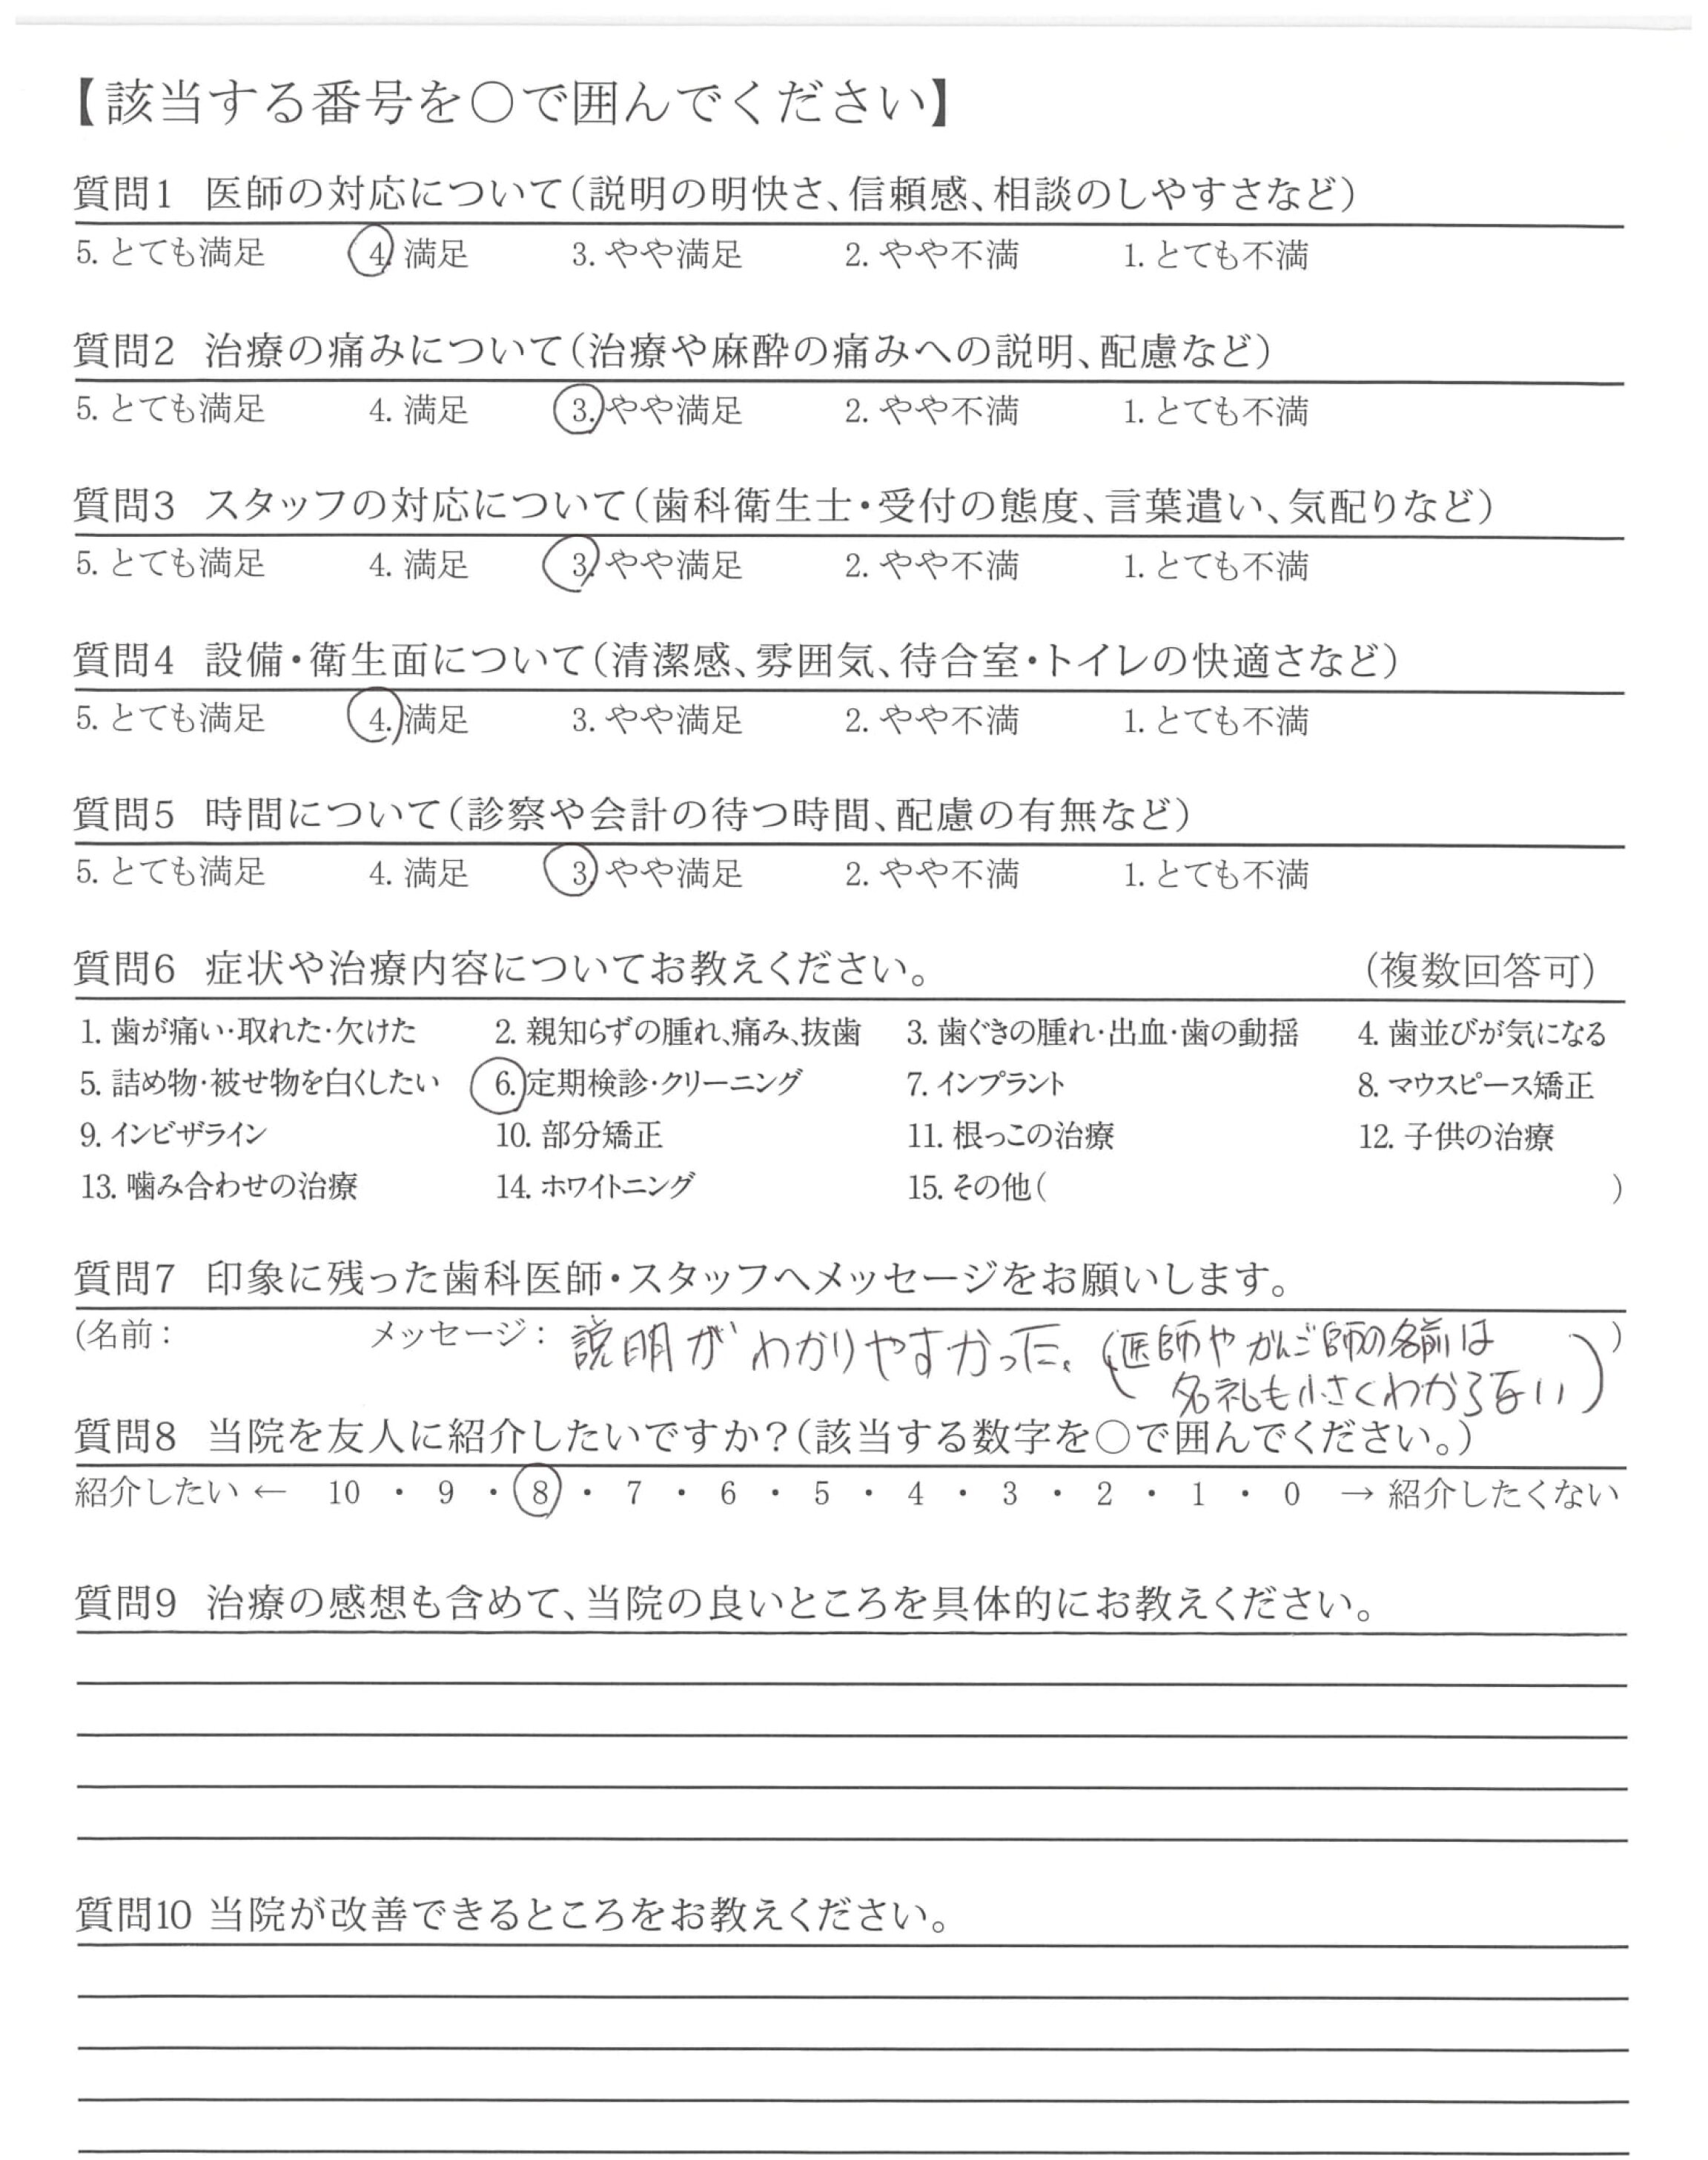 【該当する番号を○で囲んでください】
質問1 医師の対応について(説明の明快さ、信頼感、相談のしやすさなど)
5. とても満足 4. 満足 3. やや満足 2. やや不満 1. とても不満
質問2 治療の痛みについて(治療や麻酔の痛みへの説明、配慮など)
5. とても満足 4. 満足 3. やや満足 2. やや不満 1. とても不満
質問3 スタッフの対応について(歯科衛生士・受付の態度、言葉遣い、気配りなど)
5. とても満足 4. 満足 3. やや満足 2. やや不満 1. とても不満
質問4 設備・衛生面について(清潔感、雰囲気、待合室・トイレの快適さなど)
5. とても満足 4. 満足 3. やや満足 2. やや不満 1. とても不満
質問5 時間について(診察や会計の待つ時間、配慮の有無など)
5. とても満足 4. 満足 3. やや満足 2. やや不満 1. とても不満
質問6 症状や治療内容についてお教えください。 (複数回答可)
1. 歯が痛い・取れた・欠けた 2. 親知らずの腫れ、痛み、抜歯 3. 歯ぐきの腫れ・出血・歯の動揺 4. 歯並びが気になる
5. 詰め物・被せ物を白くしたい 6. 定期検診・クリーニング 7. インプラント 8. マウスピース矯正
9. インビザライン 10. 部分矯正 11. 根っこの治療 12. 子供の治療
13. 噛み合わせの治療 14. ホワイトニング 15. その他( )
質問7 印象に残った歯科医師・スタッフへメッセージをお願いします。
(名前: メッセージ: 説明がわかりやすかった。(医師やかんご師の名前は )
名札も小さくわからない)
質問8 当院を友人に紹介したいですか?(該当する数字を○で囲んでください。)
紹介したい ← 10 ・ 9 ・ 8 ・ 7 ・ 6 ・ 5 ・ 4 ・ 3 ・ 2 ・ 1 ・ 0 → 紹介したくない
質問9 治療の感想も含めて、当院の良いところを具体的にお教えください。
質問10 当院が改善できるところをお教えください。